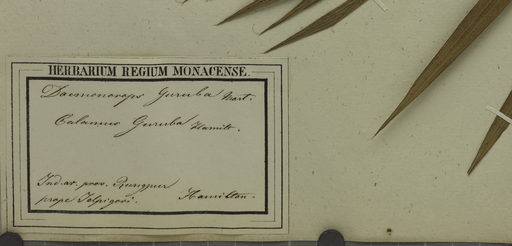 HERBARIUM REGIUM MONACENSE.
Daemonorops Guruba Mart.
Calamus Guruba Hamilt.
Ind. or. prov. Rungpur
prope Jalpigori. Hamilton.